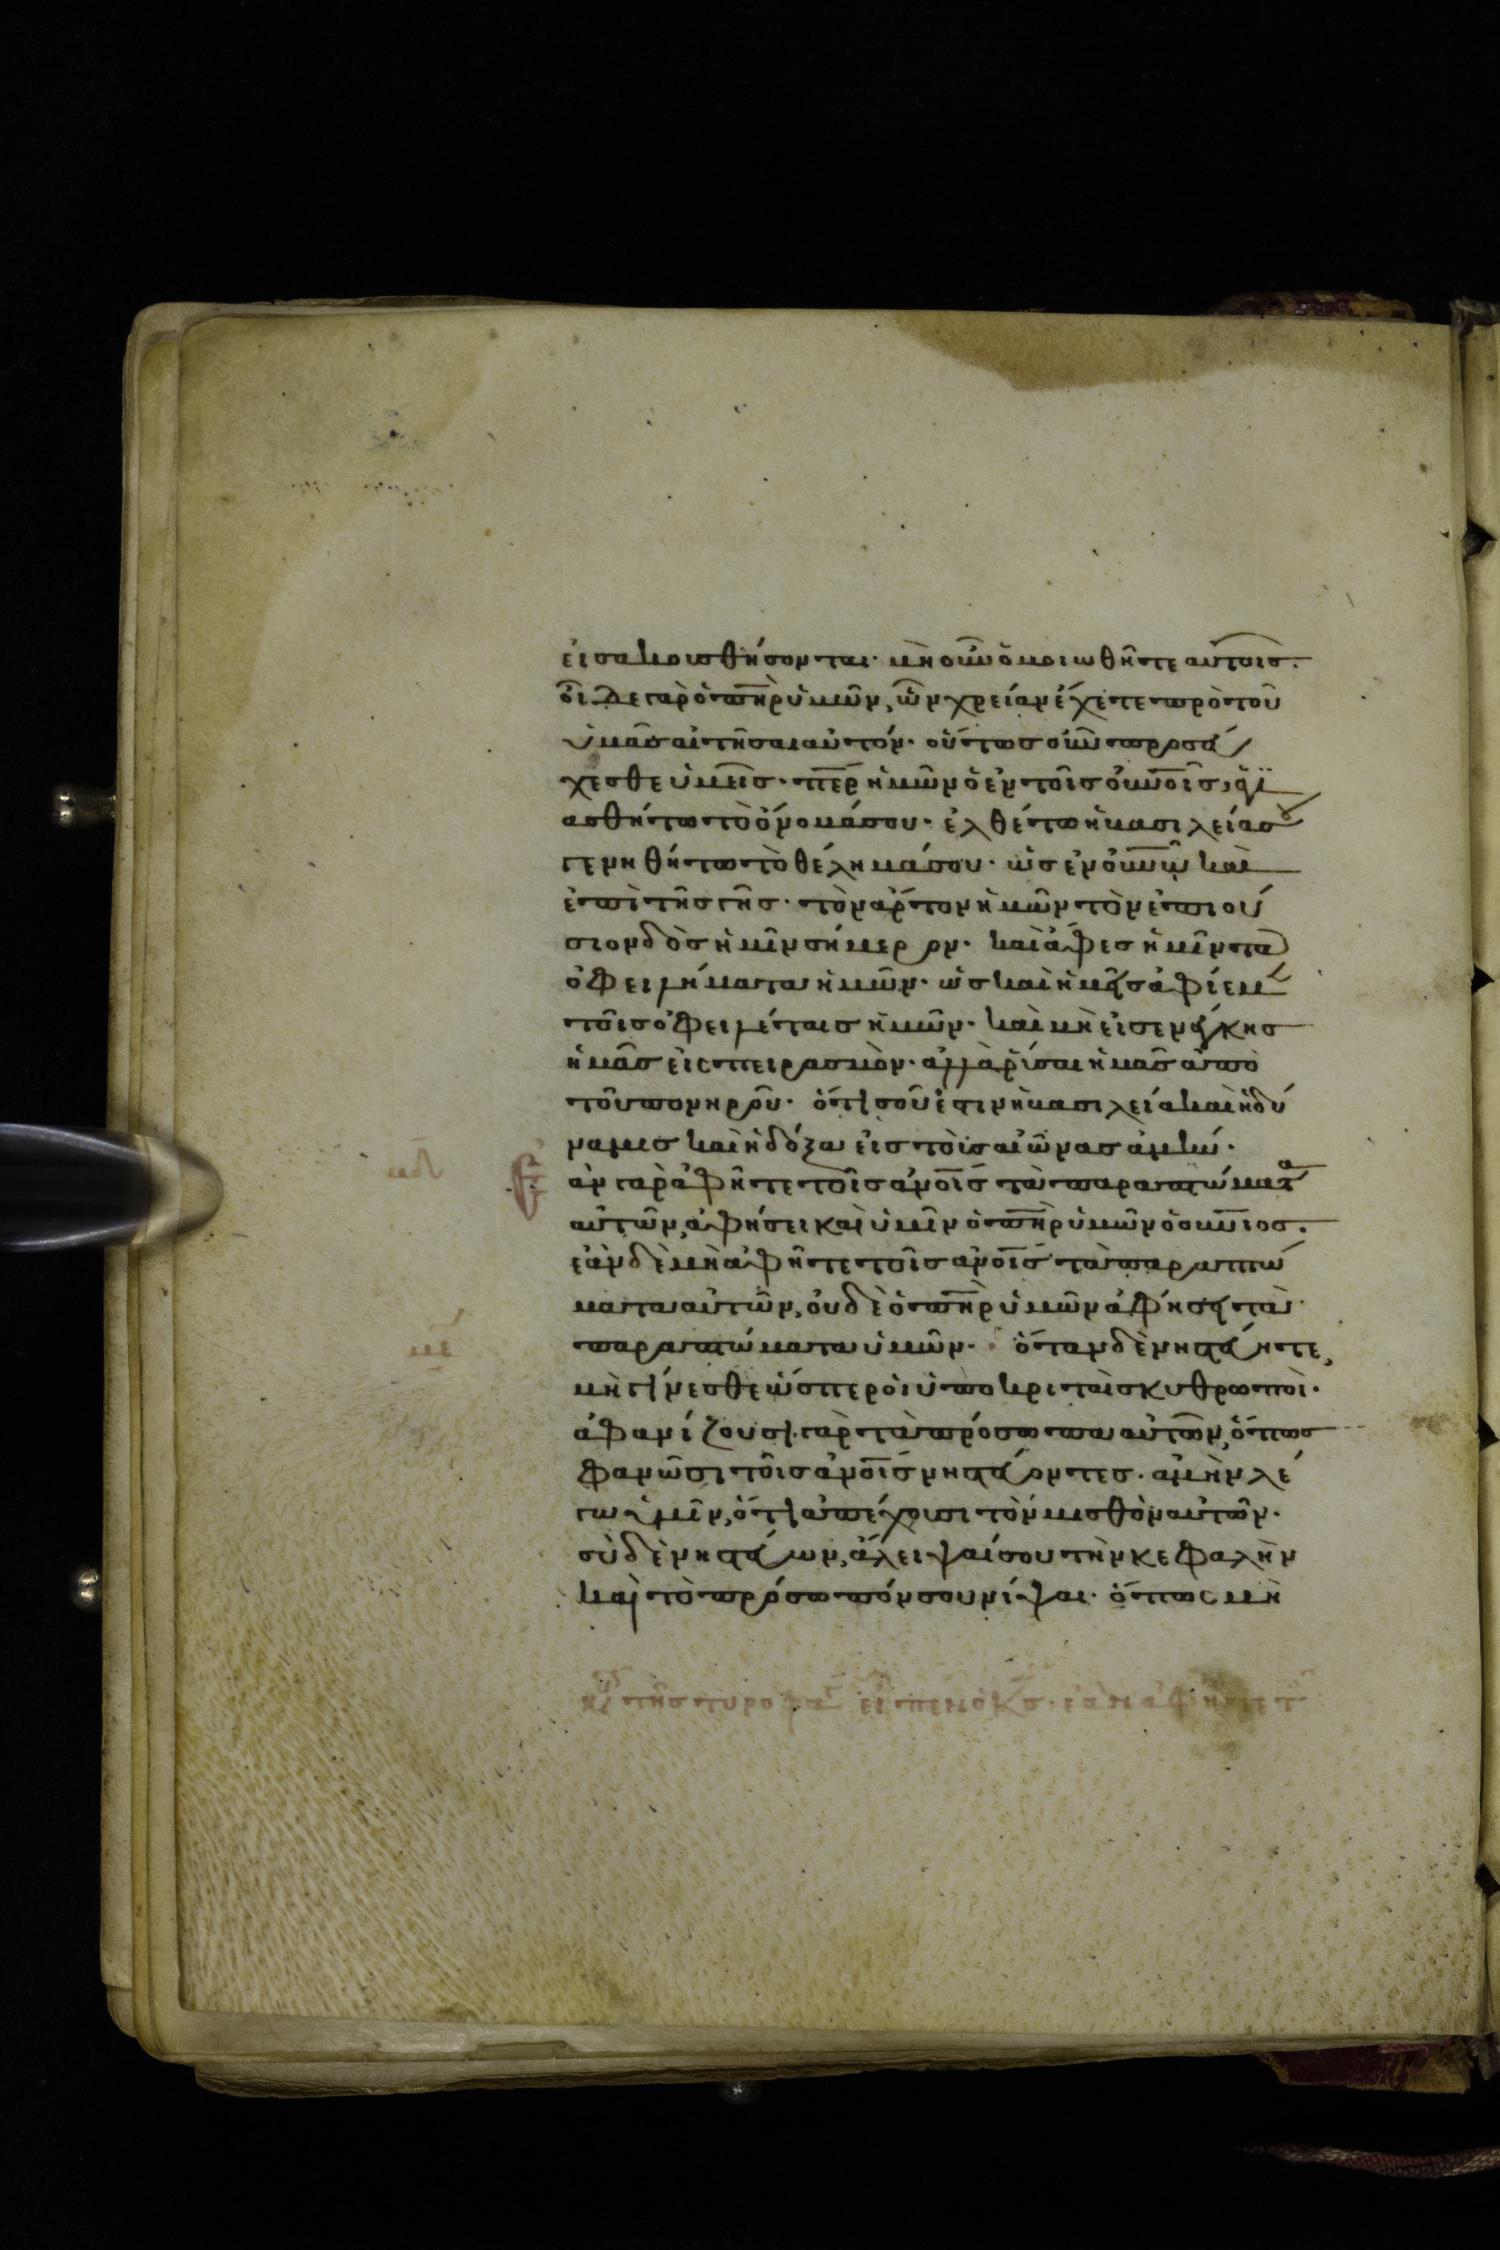 εἰσακουσθήσονται· μὴ οὖν ὁμοιωθῆτε αὐτοῖς·
οἶδε γὰρ ὁ πηρ ὑμῶν, ὧν χρείαν ἔχετε πρὸ τοῦ
ὑμᾶς αἰτῆσαι αὐτόν· οὕτως οὖν προσεύ
χεσθε ὑμεῖς· περ ἡμῶν ὁ ἐν τοῖς οὐνοῖς, ἁγι
ασθήτω τὸ ὄνομά σου· ἐλθέτω ἡ βασιλεία σου
γενηθήτω τὸ θέλημά σου· ὡς ἐν οὐνῷ καὶ
ἐπὶ τῆς γῆς· τὸν ἄρτον ἡμῶν τὸν ἐπιού
σιον δὸς ἡμῖν σήμερον· καὶ ἄφες ἡμῖν τὰ
ὀφειλήματα ἡμῶν· ὡς καὶ ἡμεῖς ἀφίεμεν
τοῖς ὀφειλέταις ἡμῶν· καὶ μὴ εἰσενέγκης
ἡμᾶς εἰς πειρασμὸν· ἀλλὰ ῥῦσαι ἡμᾶς ἀπὸ
τοῦ πονηροῦ· ὅτι σοῦ ἐστιν ἡ βασιλεία καὶ ἡ δύ
ναμις καὶ ἡ δόξα εἰς τοὺς αἰῶνας ἀμήν·
ἂν γὰρ ἀφῆτε τοῖς ἀνοῖς τὰ παραπτώματα
αὐτῶν, ἀφήσει καὶ ὑμῖν ὁ πηρ ὑμῶν ὁ οὐνιος·
ἐὰν δὲ μὴ ἀφῆτε τοῖς ἀνοῖς τὰ παραπτώ
ματα αὐτῶν, οὐδὲ ὁ πηρ ὑμῶν ἀφήσει τὰ
παραπτώματα ὑμῶν· ὅταν δὲ νηστεύητε,
μὴ γίνεσθε ὥσπερ οἱ ὑποκριταὶ σκυθρωποὶ·
ἀφανίζουσι γὰρ τὰ πρόσωπα αὐτῶν, ὅπως
φανῶσι τοῖς ἀνοῖς νηστεύοντες· ἀμὴν λέ
γω ὑμῖν, ὅτι ἀπέχουσι τὸν μισθὸν αὐτῶν·
σὺ δὲ νηστεύων, ἄλειψαί σου τὴν κεφαλὴν
καὶ τὸ πρόσωπόν σου νίψαι· ὅπως μὴ
τῆς τυροφα εἶπεν ὁ κς· ἐὰν ἀφῆτε τ